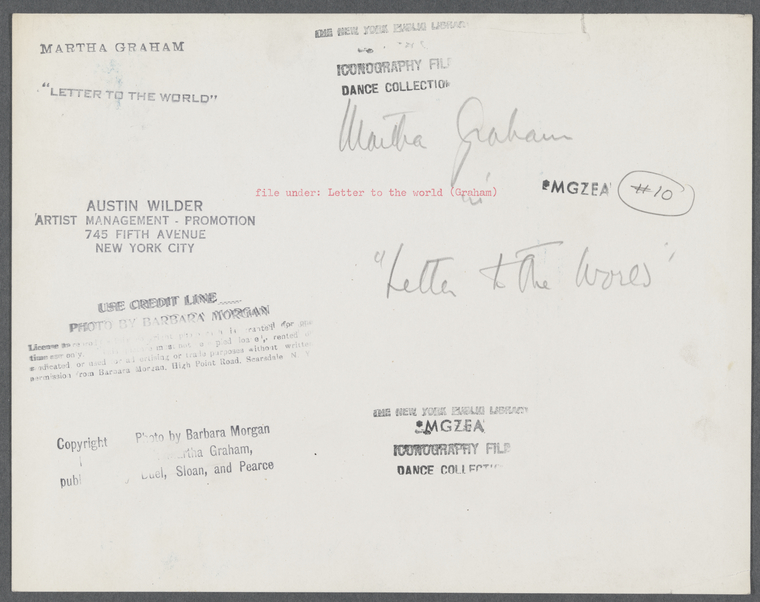 MARTHA GRAHAM
"LETTER TO THE WORLD"
THE NEW YORK PUBLIC LIBRARY
ICONOGRAPHY FILE
DANCE COLLECTION
Martha Graham
in
file under: Letter to the world (Graham)
*MGZEA
#10
"Letter to the World"
AUSTIN WILDER
ARTIST MANAGEMENT - PROMOTION
745 FIFTH AVENUE
NEW YORK CITY
USE CREDIT LINE
PHOTO BY BARBARA MORGAN
License granted for
time use only must not
syndicated or used advertising or trade purposes without written
permission from Barbara Morgan, High Point Road, Scarsdale N. Y.
Copyright Photo by Barbara Morgan
Martha Graham,
publ Duel, Sloan, and Pearce
THE NEW YORK PUBLIC LIBRARY
*MGZEA
ICONOGRAPHY FILE
DANCE COLLECTION